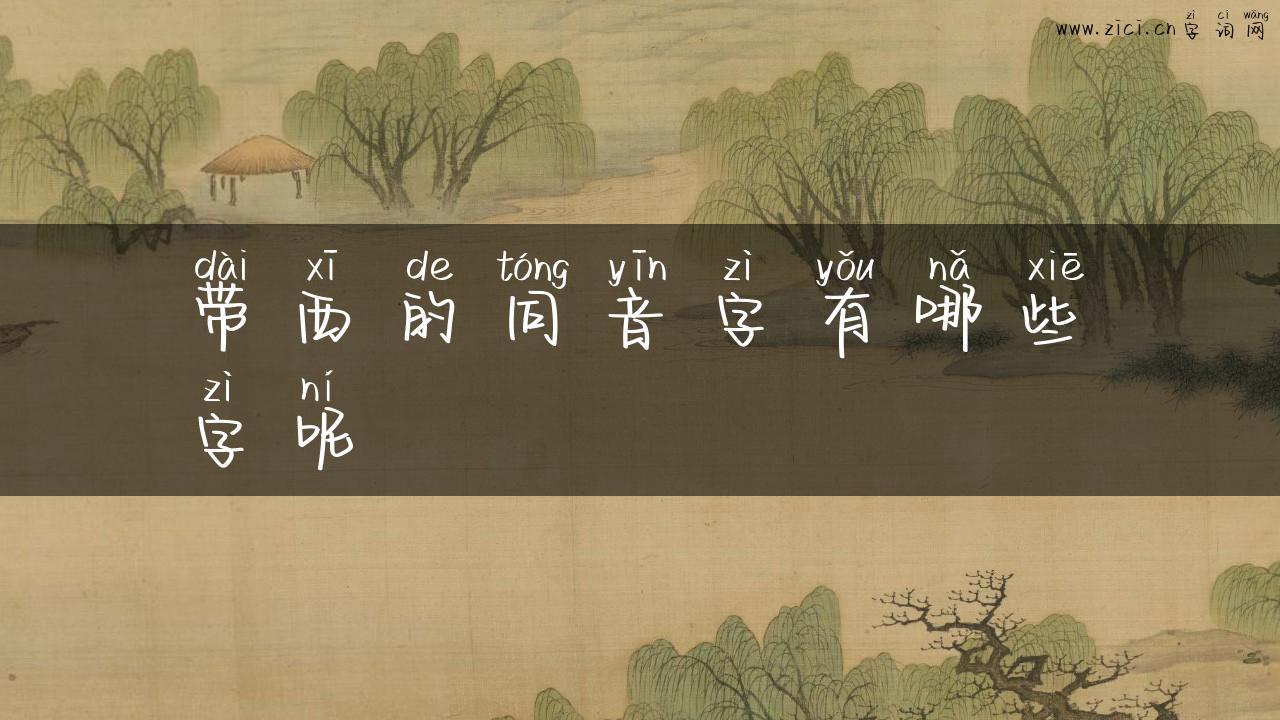 zì cí wǎng
www.zici.cn 字 词 网
dài xī de tóng yīn zì yǒu nǎ xiē
带 西 的 同 音 字 有 哪 些
zì ní
字 呢